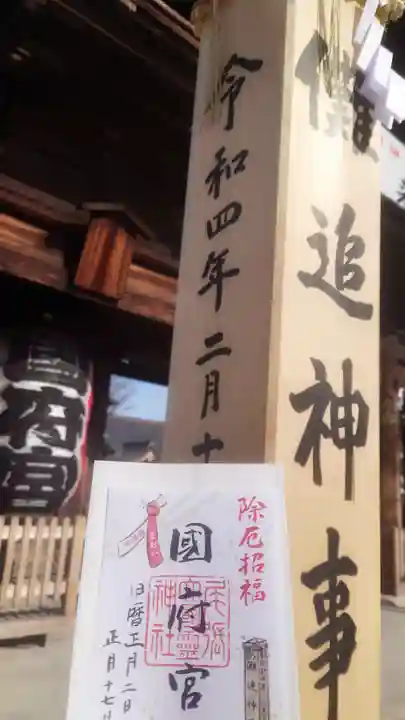 儺追神事
令和四年二月十
國府宮
除厄招福
國府宮
尾張
大國霊
神社
旧暦正月二日
正月十七日
儺追神